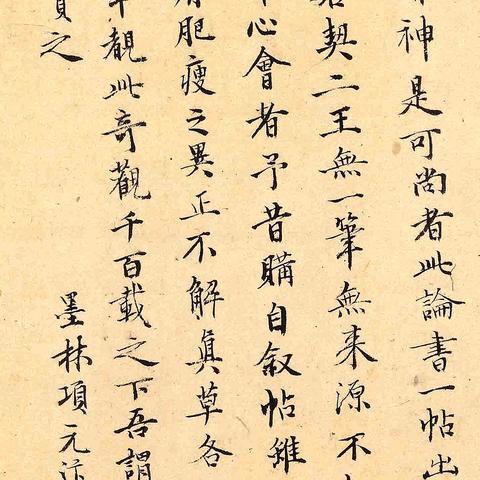 神是可尚者此論書一帖出
契二王無一筆無来源不
心會者予昔購自叙帖雖
肥瘦之異正不解真草各
覩此奇觀千百載之下吾謂
之
墨林項元